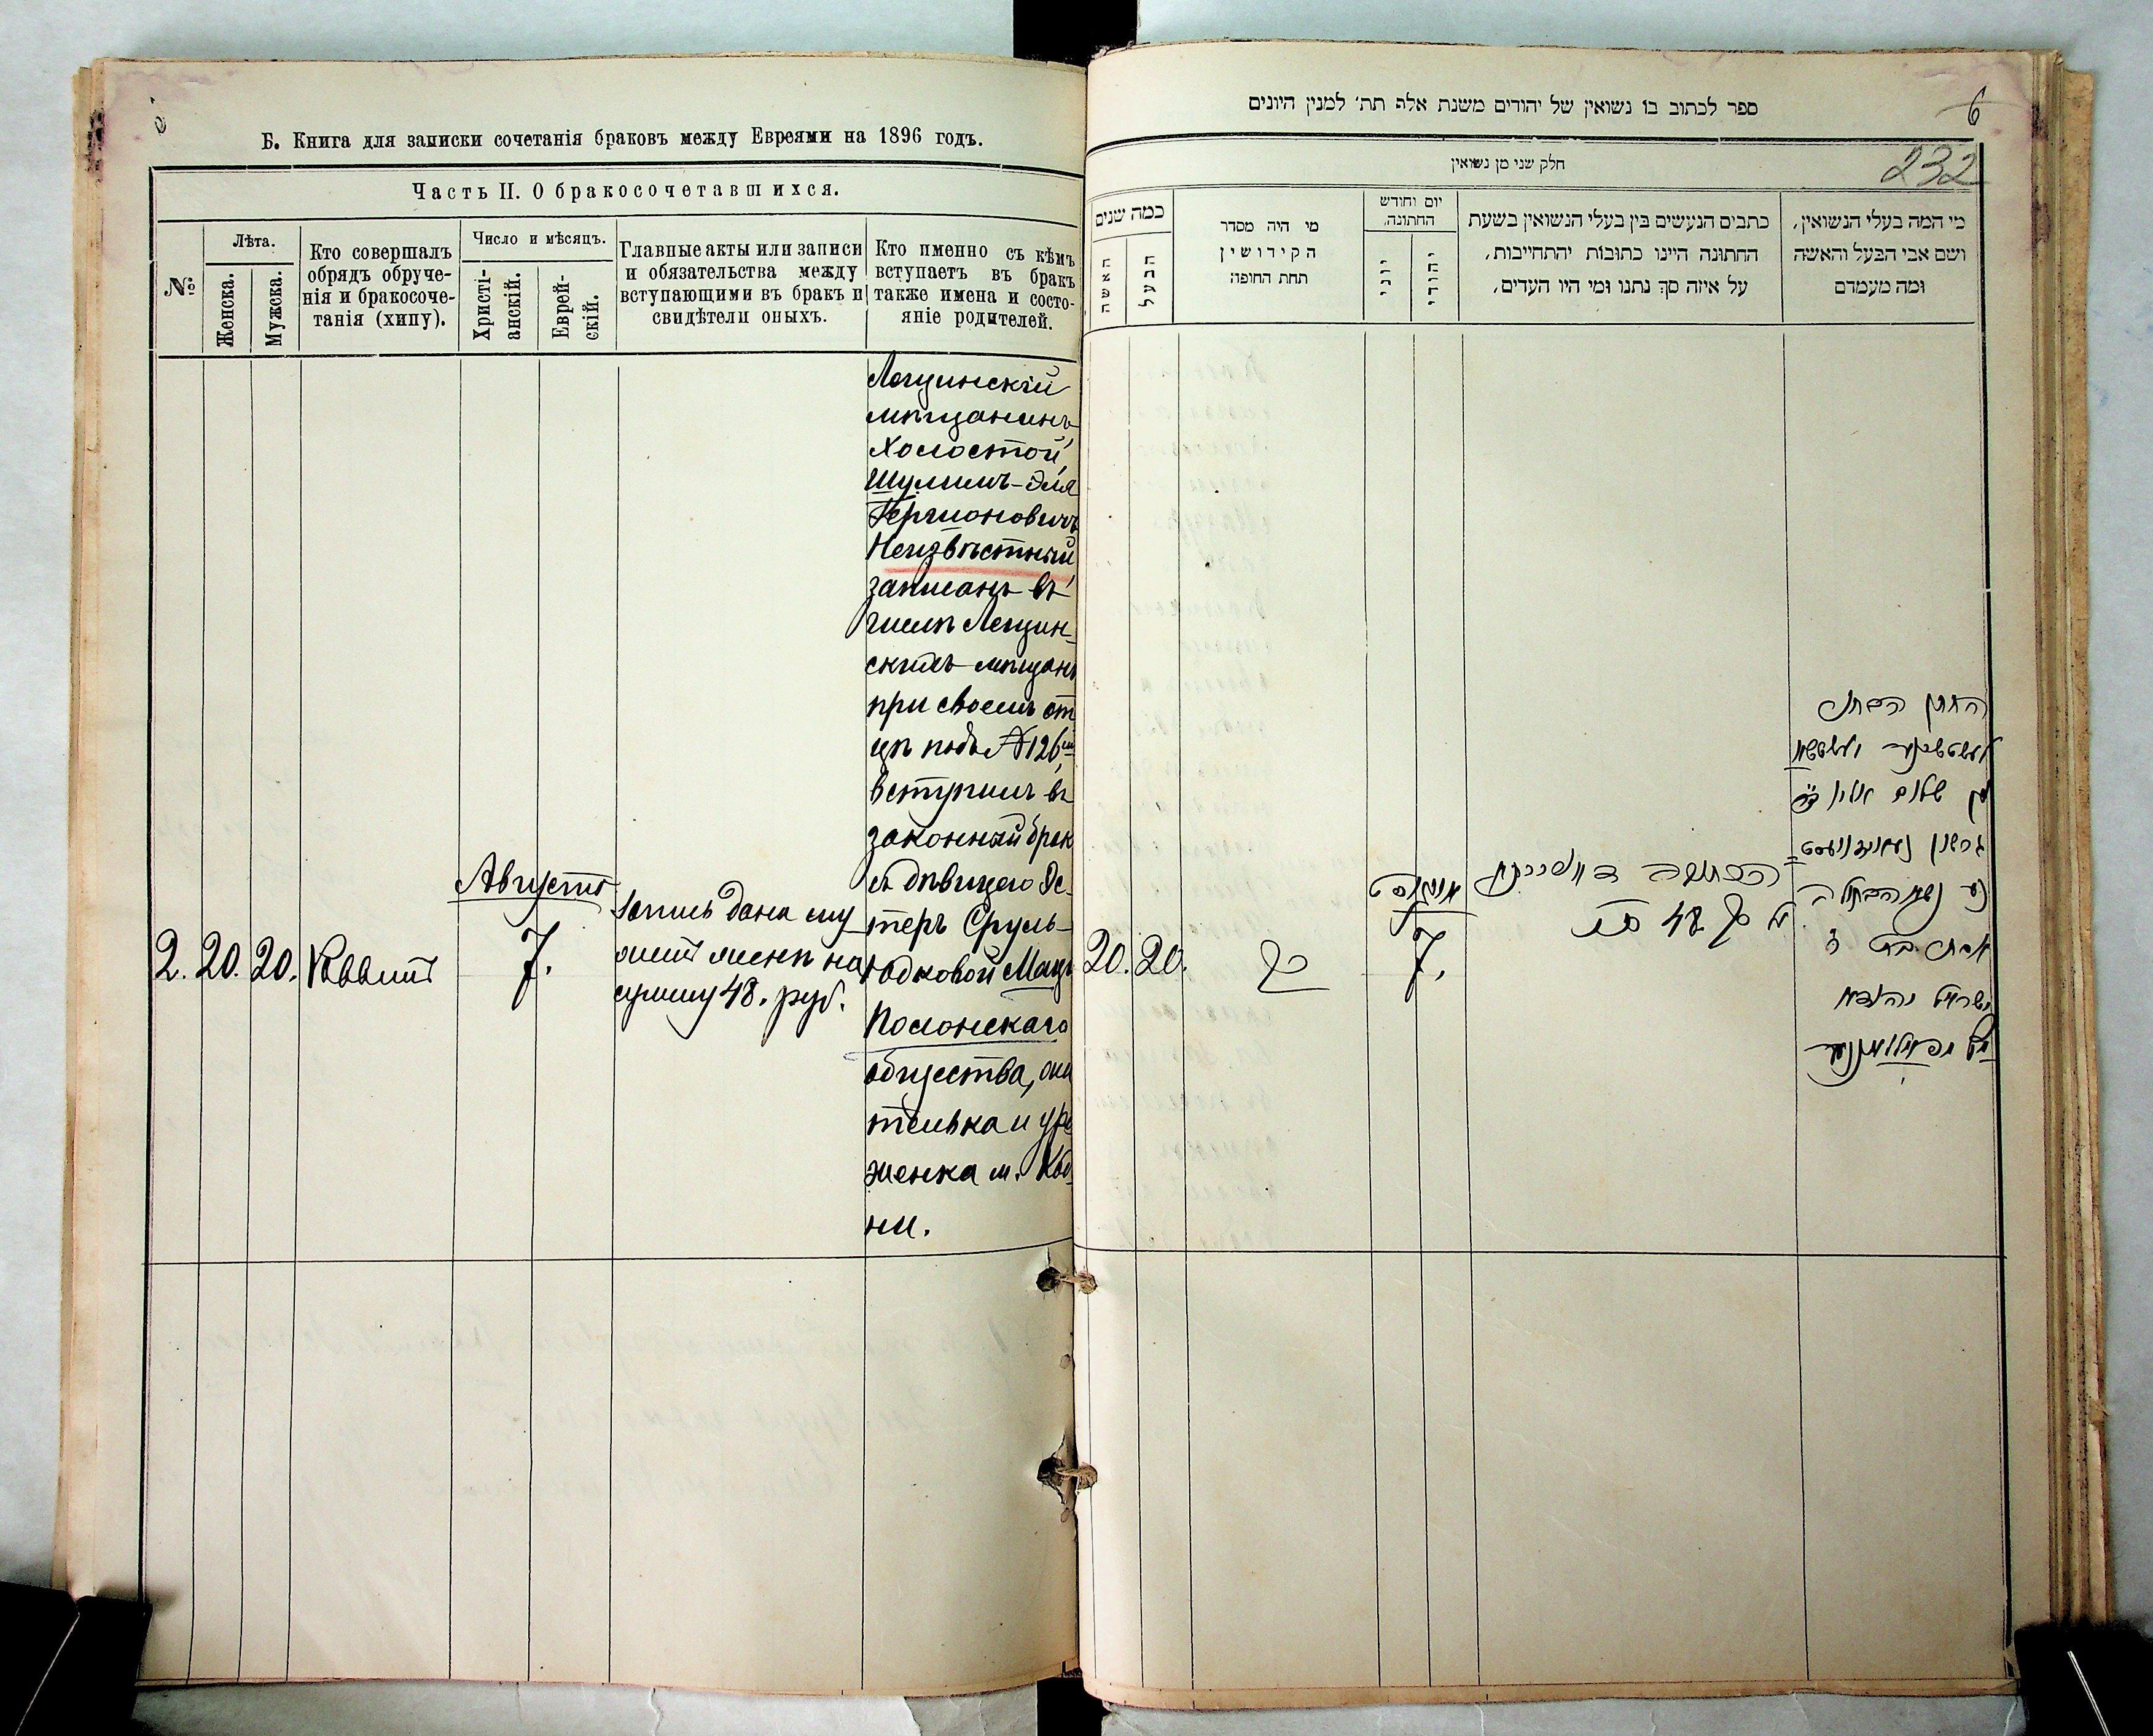 Б. Книга для записки сочетанія браковъ между Евреями на 1896 годъ.
Часть II. О бракосочетавшихся.
№
Лѣта.
Женска.
Мужска.
Кто совершалъ
обрядъ обруче-
нія и бракосоче-
танія (хипу).
Число и мѣсяцъ.
Христі-
анскій.
Еврей-
скій.
Главные акты или записи
и обязательства между
вступающими въ бракъ и
свидѣтели оныхъ.
Кто именно съ кѣмъ
вступаетъ въ бракъ
также имена и состо-
яніе родителей.
2.
20.
20.
Раввинъ
Августъ
7.
Запись дана
на
сумму 48. руб.
мѣщанинъ
Холостой
Шулимъ-Эля
Гершоновичъ
Неизвѣстный
записанъ въ
числѣ Лещин-
скихъ мѣщанъ
при своемъ от
цѣ подъ №126
вступилъ въ
законный брак
съ дѣвицею Эс-
теръ Сруль-
Юдковой Мац
Полонскаго
общества, она
и уро
женка м.
ни.
ספר לכתוב בו נשואין של יהודים משנת אלף תת׳ למנין היונים
6
232
חלק שני מן נשואין
כמה שנים
האשה
הבעל
מי היה מסדר
הקידושין
תחת החופה
יום וחודש
החתונה.
יוני
יהודי
כתבים הנעשים בין בעלי הנשואין בשעת
החתונה היינו כתובות יהתחייבות,
על איזה סך נתנו ומי היו העדים,
מי המה בעלי הנשואין,
ושם אבי הבעל והאשה
ומה מעמדם
20.
20.
אויגוסט
7.
הכתובה
סך 48
החתן הבחור
שלום אליו
גרשון
אסתר בת ר׳
ישראל יהודא